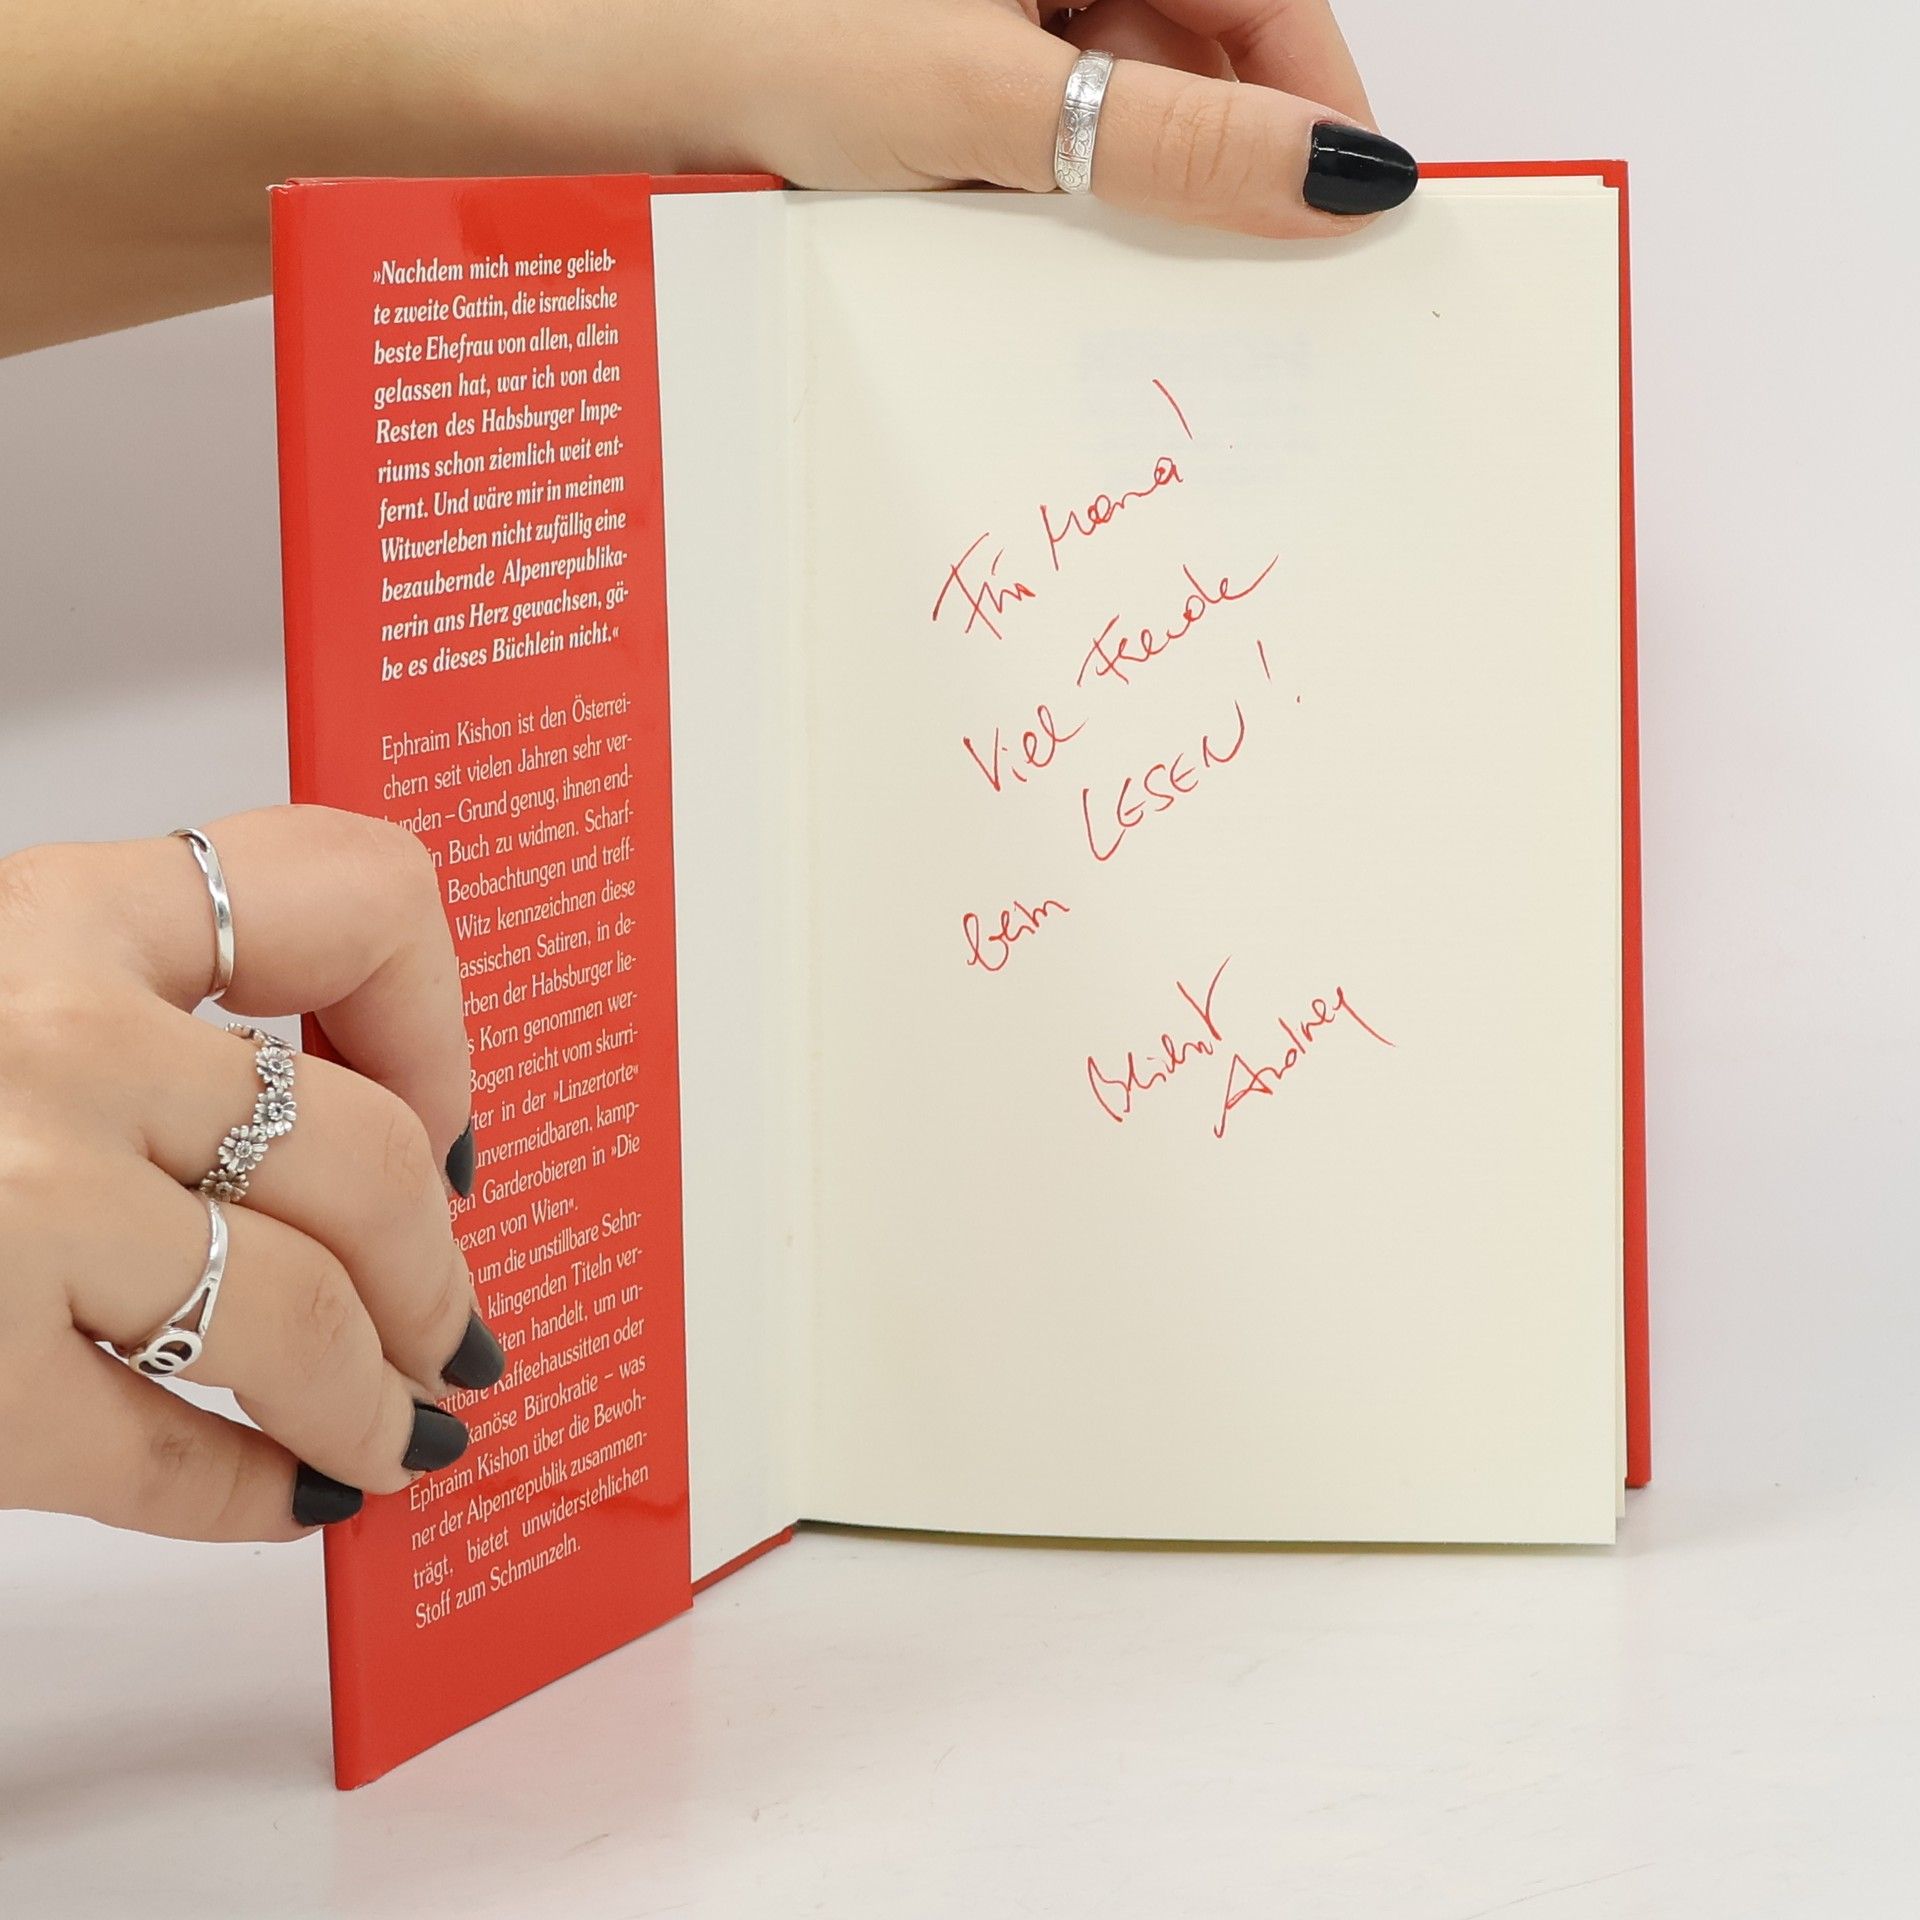 »Nachdem mich meine gelieb-
te zweite Gattin, die israelische
beste Ehefrau von allen, allein
gelassen hat, war ich von den
Resten des Habsburger Impe-
riums schon ziemlich weit ent-
fernt. Und wäre mir in meinem
Witwerleben nicht zufällig eine
bezaubernde Alpenrepublika-
nerin ans Herz gewachsen, gä-
be es dieses Büchlein nicht.«
Ephraim Kishon ist den Österrei-
chern seit vielen Jahren sehr ver-
bunden – Grund genug, ihnen end-
in Buch zu widmen. Scharf-
Beobachtungen und treff-
Witz kennzeichnen diese
lassischen Satiren, in de-
rben der Habsburger lie-
s Korn genommen wer-
Bogen reicht vom skurri-
ter in der »Linzertorte«
unvermeidbaren, kamp-
gen Garderobieren in »Die
hexen von Wien«.
um die unstillbare Sehn-
klingenden Titeln ver-
iten handelt, um un-
ottbare Kaffeehaussitten oder
kanöse Bürokratie – was
Ephraim Kishon über die Bewoh-
ner der Alpenrepublik zusammen-
trägt, bietet unwiderstehlichen
Stoff zum Schmunzeln.
Für Mama!
Viel Freude
beim LESEN!
Andrey